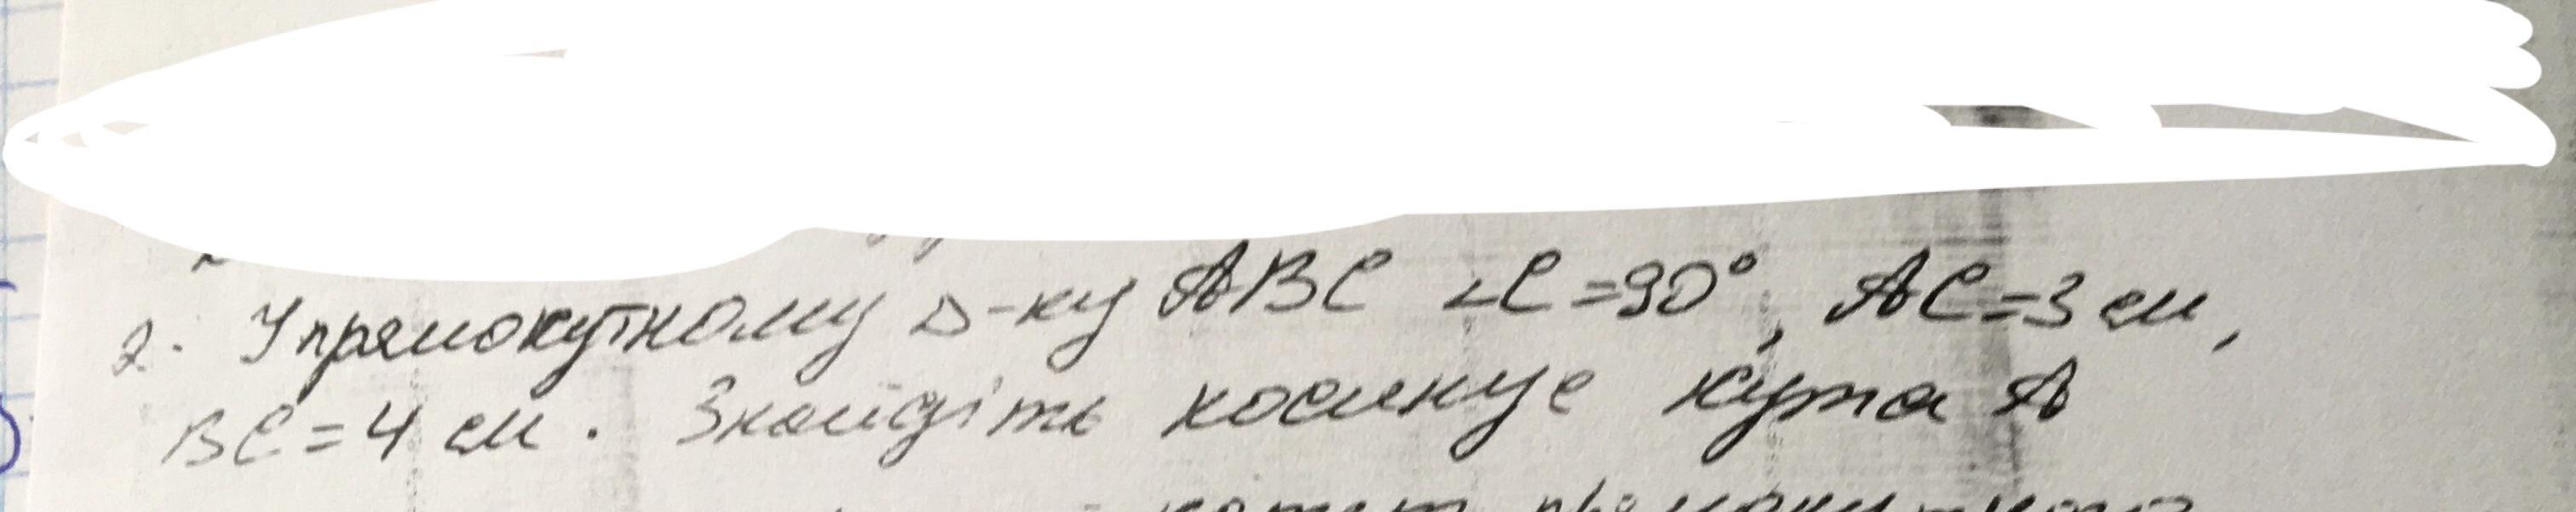 2. У прямокутному Δ-ку ABC ∠C=90°, AC=3 см,
BC=4 см. Знайдіть косинус кута A
катет прямокутного